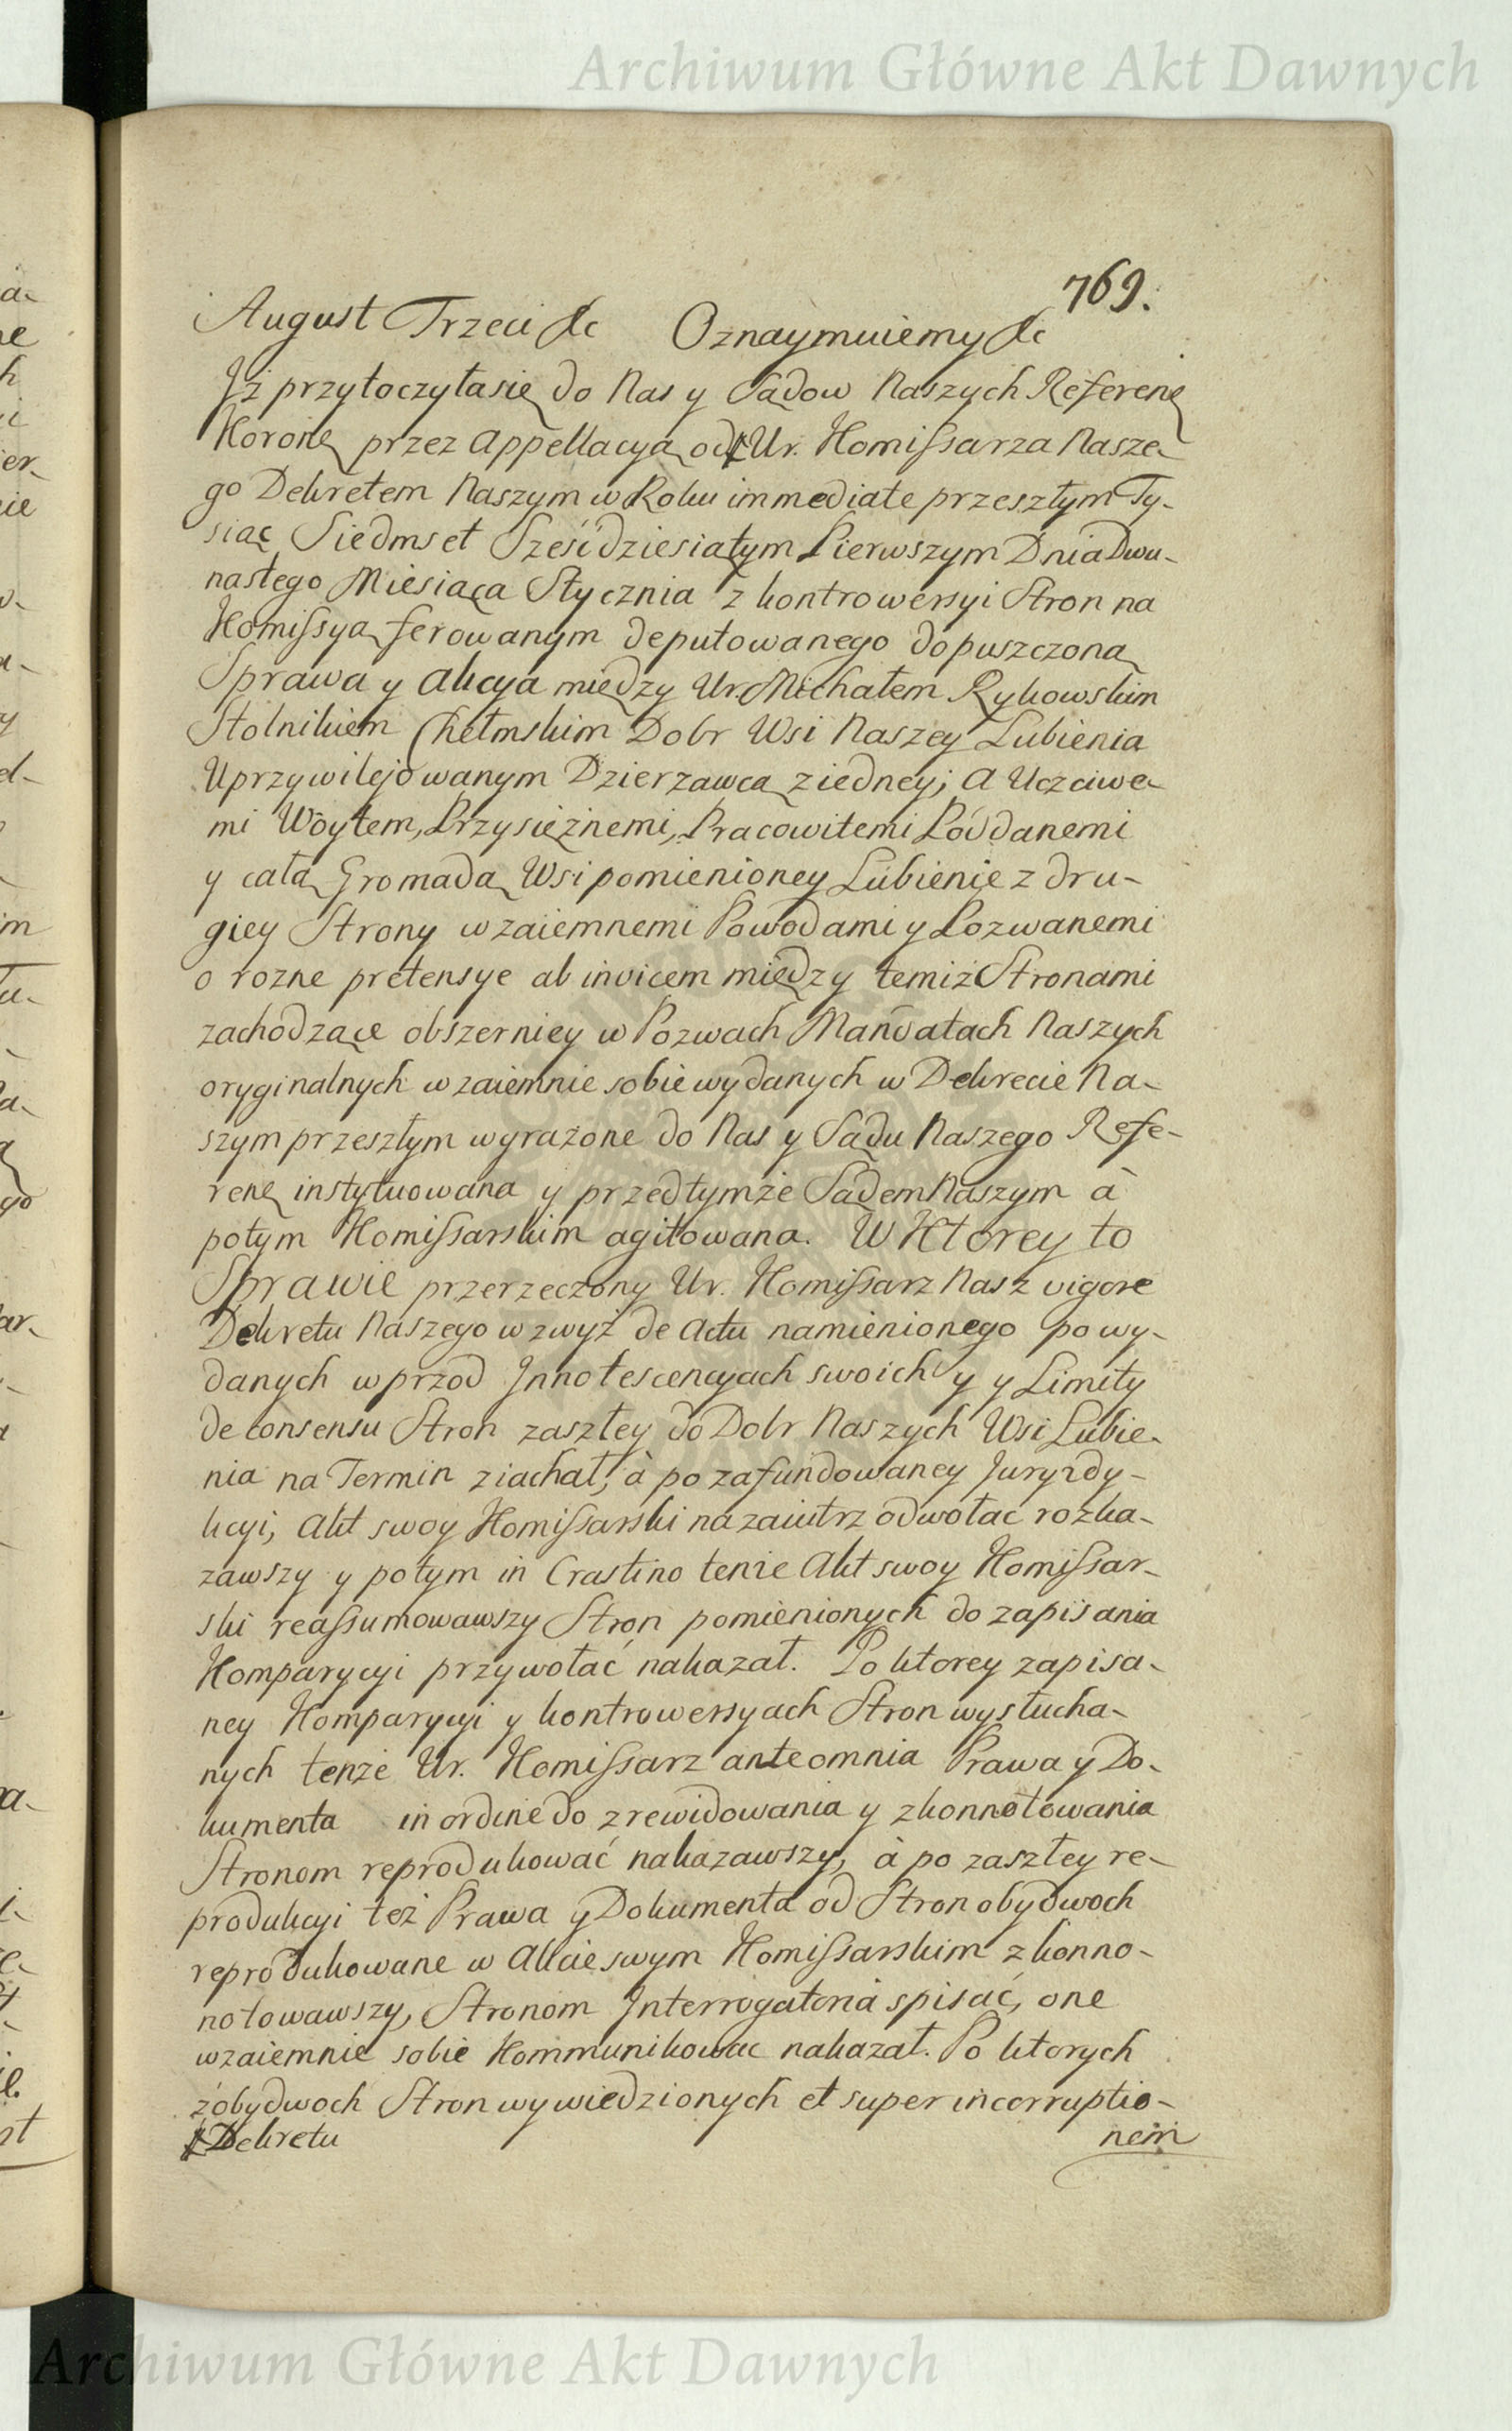 Archiwum Główne Akt Dawnych
769.
August Trzeci &c Oznaymuiemy &c
Jż przytoczyłasię do Nas y Sądow Naszych Referenę
Koronę przez Appellacyą od Ur. Komissarza Nasze-
go Dekretem Naszym w Roku immediate przeszłym Ty-
siąc Siedmset Sześćdziesiątym Pierwszym Dnia Dwu-
nastego Miesiąca Stycznia z kontrowersyi Stron na
Komissyą ferowanym deputowanego dopuszczona
Sprawa y Akcya między Ur. Michałem Rykowskim
Stolnikiem Chełmskim Dobr Wsi Naszey Lubienia
Uprzywilejowanym Dzierzawcą z iedney; A Uczciwe-
mi Woytem, Przysiężnemi, Pracowitemi Poddanemi
y całą Gromadą Wsi pomienioney Lubienie z dru-
giey Strony wzaiemnemi Powodami y Pozwanemi
o rozne pretensye ab invicem między temiż Stronami
zachodzące obszerniey w Pozwach Mandatach Naszych
oryginalnych wzaiemnie sobie wydanych w Dekrecie Na-
szym przeszłym wyrażone do Nas y Sądu Naszego Refe-
renę instytuowana y przed tymże Sądem Naszym à
potym Komissarskim agitowana. W Ktorey to
Sprawie przerzeczony Ur. Komissarz Nasz vigore
Dekretu Naszego wzwyż de Actu namienionego po wy-
danych wprzod Jnnotescencyach swoich y y Limity
de consensu Stron zaszłey do Dobr Naszych Wsi Lubie-
nia na Termin ziachał, à po zafundowaney Juryzdy-
kcyi, Akt swoy Komissarski nazaiutrz odwołac rozka-
zawszy y potym in Crastino tenże Akt swoy Komissar-
ski reassumowawszy Stron pomienionych do zapisania
Komparycyi przywołać nakazał. Po ktorey zapisa-
ney Komparycyi y kontrowersyach Stron wysłucha-
nych tenże Ur. Komissarz ante omnia Prawa y Do-
kumenta in ordine do zrewidowania y zkonnotowania
Stronom reprodukować nakazawszy, à po zaszłey re-
produkcyi też Prawa y Dokumenta od Stron obydwoch
reprodukowane w Akcie swym Komissarskim zkonno-
notowawszy, Stronom Jnterrogatoria spisać, one
wzaiemnie sobie Kommunikowac nakazał. Po ktorych
z obydwoch Stron wywiedzionych et super incorruptio-
Dekretu nem
Archiwum Główne Akt Dawnych